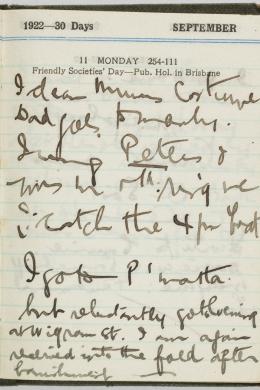 1922—30 Days SEPTEMBER
11 MONDAY 254-111
Friendly Societies' Day—Pub. Hol. in Brisbane
I clean Mums Costume
Dad goes
I ring Peters &
me
I catch the 4 pm boat
I go to P'matta
but reluctantly go evening
at Wigram St. I am again
received into the fold after
banishment